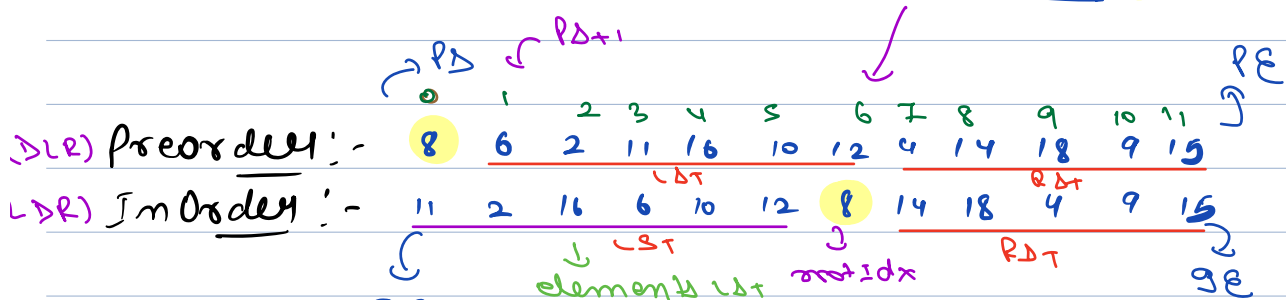 PS PS+1 PE
0 1 2 3 4 5 6 7 8 9 10 11
(DLR) Preorder :- 8 6 2 11 16 10 12 4 14 18 9 15
LST RST
LDR) InOrder :- 11 2 16 6 10 12 8 14 18 4 9 15
LST RST
elements LST rootIdx IE